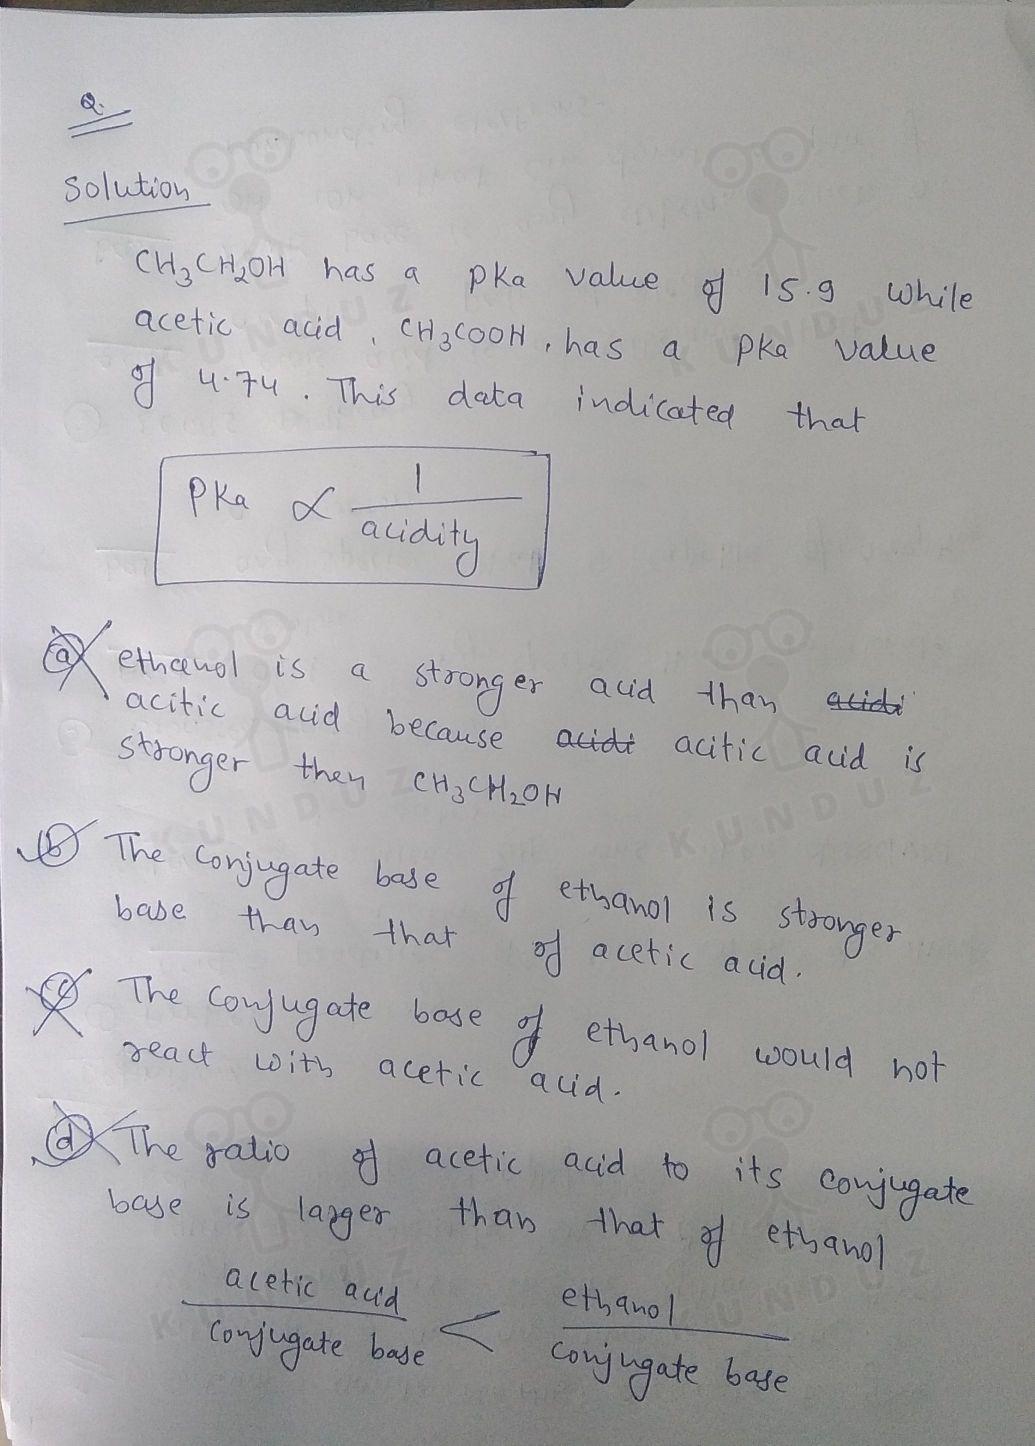 Q.
Solution
CH3CH2OH has a pKa value of 15.9 while
acetic acid, CH3COOH, has a pKa value
of 4.74. This data indicated that
PKa ∝ 1/acidity
(a) ethanol is a stronger acid than acidi
acitic acid because acidi acitic acid is
stronger then CH3CH2OH
(b) The conjugate base of ethanol is stronger
base than that of acetic acid.
(c) The conjugate base of ethanol would not
react with acetic acid.
(d) The ratio of acetic acid to its conjugate
base is larger than that of ethanol
acetic acid/conjugate base < ethanol/conjugate base
KUNDUZ
KUNDUZ
KUNDUZ
KUNDUZ
KUNDUZ
KUNDUZ